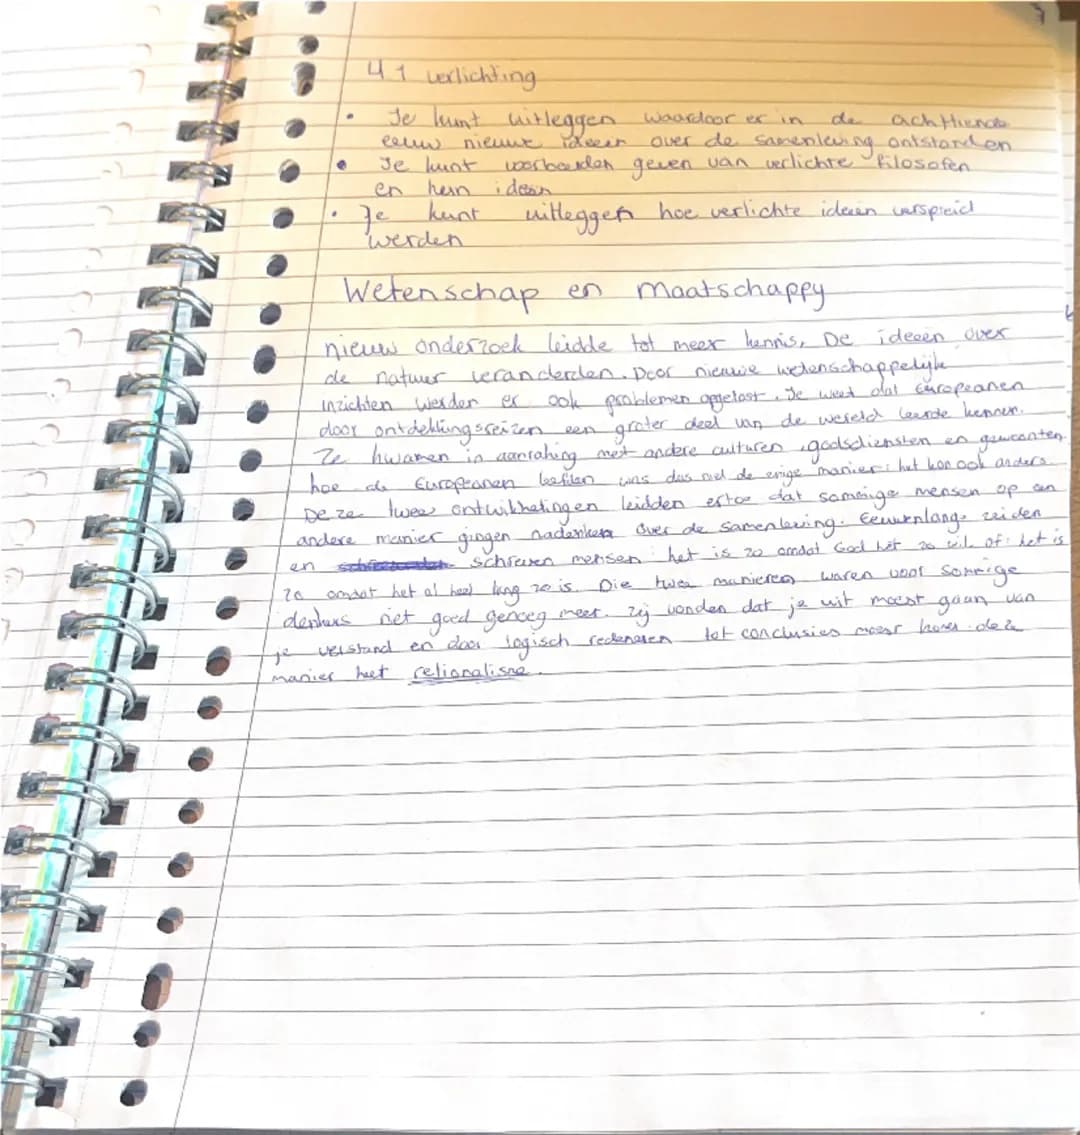 4 1 verlichting
• Je kunt uitleggen waardoor er in de achttiende
eeuw nieuwe ideeën over de samenleving ontstonden
• Je kunt voorbeelden geven van verlichte filosofen
en hun ideeën
• Je kunt uitleggen hoe verlichte ideeën verspreid
werden
Wetenschap en maatschappy
nieuw onderzoek leidde tot meer kennis. De ideeën over
de natuur veranderden. Door nieuwe wetenschappelijke
inzichten werden er ook problemen opgelost. Je weet dat Europeanen
door ontdekkingsreizen een groter deel van de wereld leerde kennen.
Ze kwamen in aanraking met andere culturen, godsdiensten en gewoonten.
hoe de Europeanen leefden was dus niet de enige manier: het kon ook anders.
Deze twee ontwikkelingen leidden ertoe dat sommige mensen op een
andere manier gingen nadenken over de samenleving. Eeuwenlang zeiden
en schreven mensen: het is zo omdat God het zo wil of: het is
zo omdat het al heel lang zo is. Die twee manieren waren voor sommige
denkers niet goed genoeg meer. zij vonden dat je uit moest gaan van
je verstand en door logisch redeneren tot conclusies moest komen. deze
manier heet